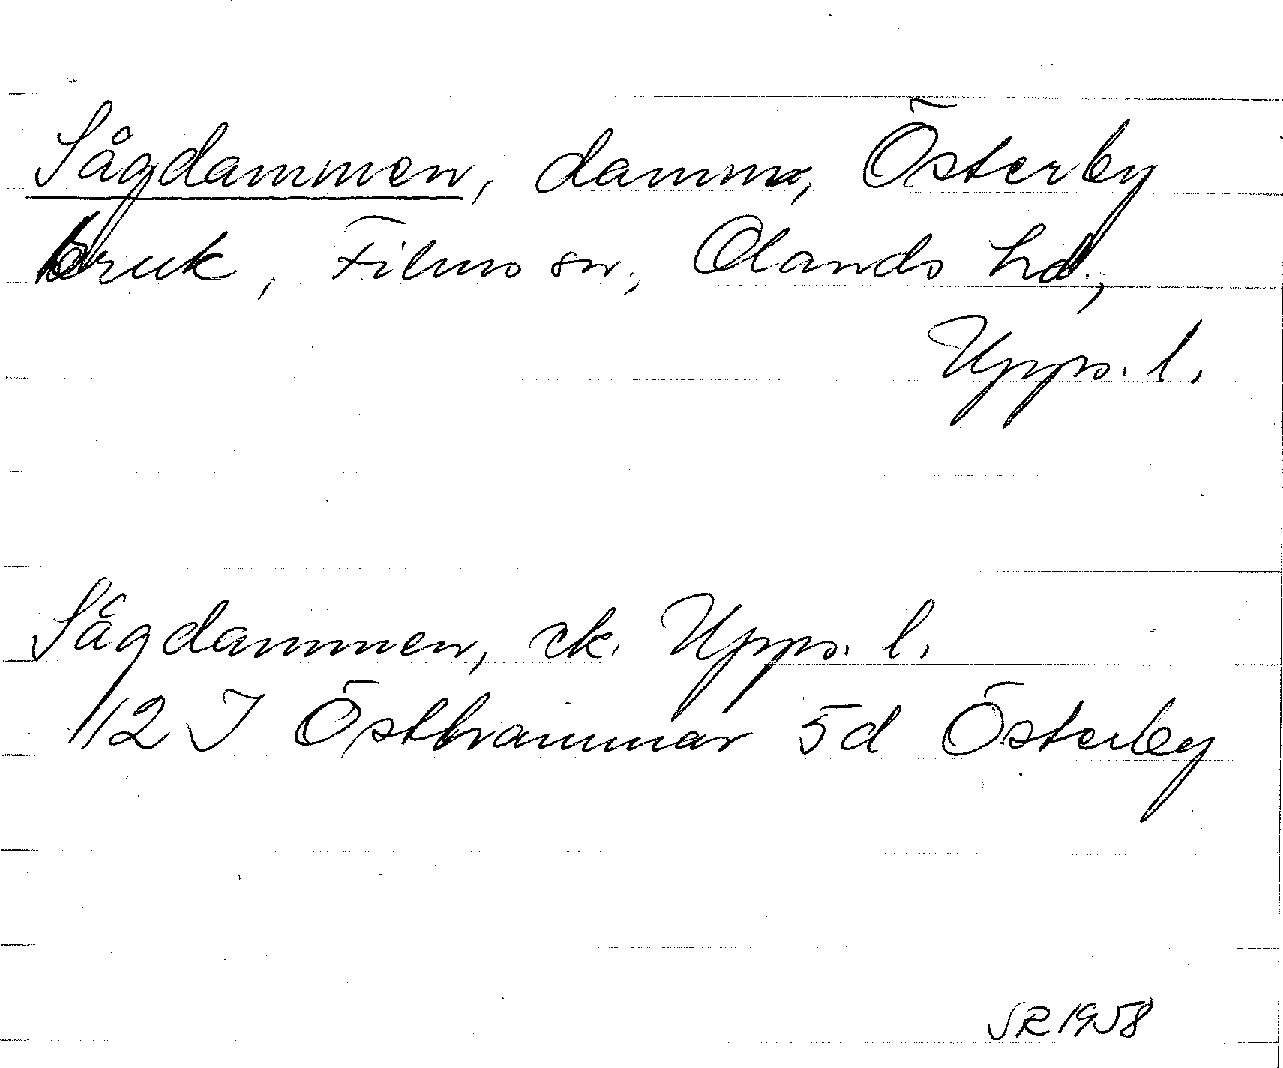 Sågdammen, damm, Österby
bruk, Films sn, Olands hd,
Upps. l.
Sågdammen, ek. Upps. l.
12 I Östhammar 5d Österby
SR 1958